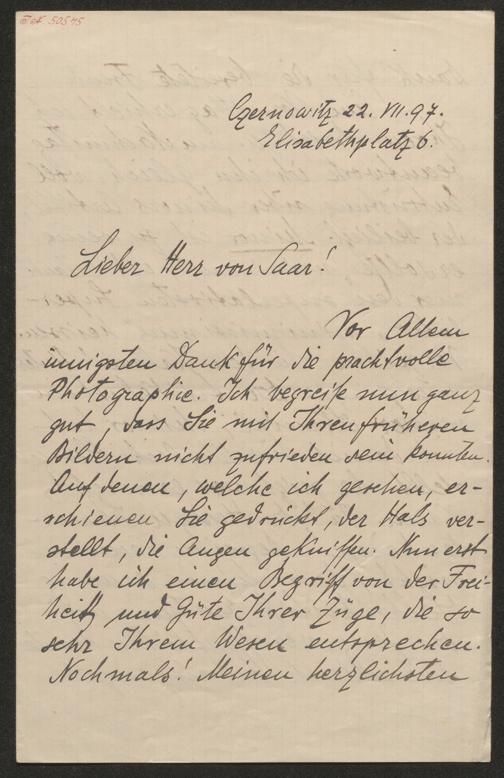 I.N. 50575
Czernowitz 22. VII. 97.
Elisabethplatz 6.
Lieber Herr von Saar!
Vor Allem
innigsten Dank für die prachtvolle
Photographie. Ich begreife nun ganz
gut, dass Sie mit Ihren früheren
Bildern nicht zufrieden sein konnten.
Auf denen, welche ich gesehen, er-
schienen Sie gedrückt, der Hals ver-
stellt, die Augen gekniffen. Nun erst
habe ich einen Begriff von der Frei-
heit und Güte Ihrer Züge, die so
sehr Ihrem Wesen entsprechen.
Nochmals! Meinen herzlichsten